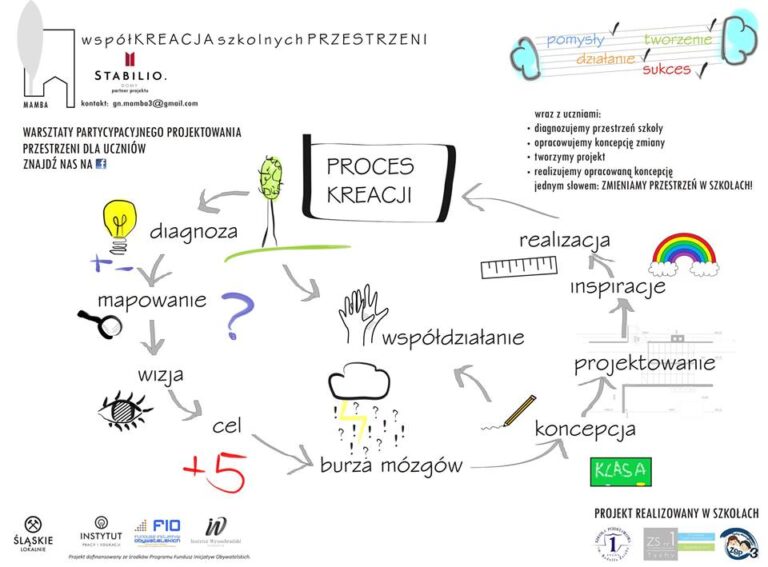 współKREACJA szkolnych PRZESTRZENI
STABILIO.
DOMY
partner projektu
MAMBA
kontakt: gn.mamba3@gmail.com
pomysły
tworzenie
działanie
sukces
WARSZTATY PARTYCYPACYJNEGO PROJEKTOWANIA
PRZESTRZENI DLA UCZNIÓW
ZNAJDŹ NAS NA f
wraz z uczniami:
• diagnozujemy przestrzeń szkoły
• opracowujemy koncepcję zmiany
• tworzymy projekt
• realizujemy opracowaną koncepcję
jednym słowem: ZMIENIAMY PRZESTRZEŃ W SZKOŁACH!
PROCES
KREACJI
diagnoza
+ -
mapowanie
?
wizja
cel
+5
burza mózgów
? ? ? ? ? ?
! ! ! ! !
współdziałanie
koncepcja
KLASA
projektowanie
inspiracje
realizacja
ŚLĄSKIE
LOKALNIE
INSTYTUT
PRACY I EDUKACJI
FIO
FUNDUSZ INICJATYW
OBYWATELSKICH
Instytut Wzornictwa
Projekt dofinansowany ze środków Programu Fundusz Inicjatyw Obywatelskich.
PROJEKT REALIZOWANY W SZKOŁACH
1
ZS nr 1
Tychy
ZSP 3